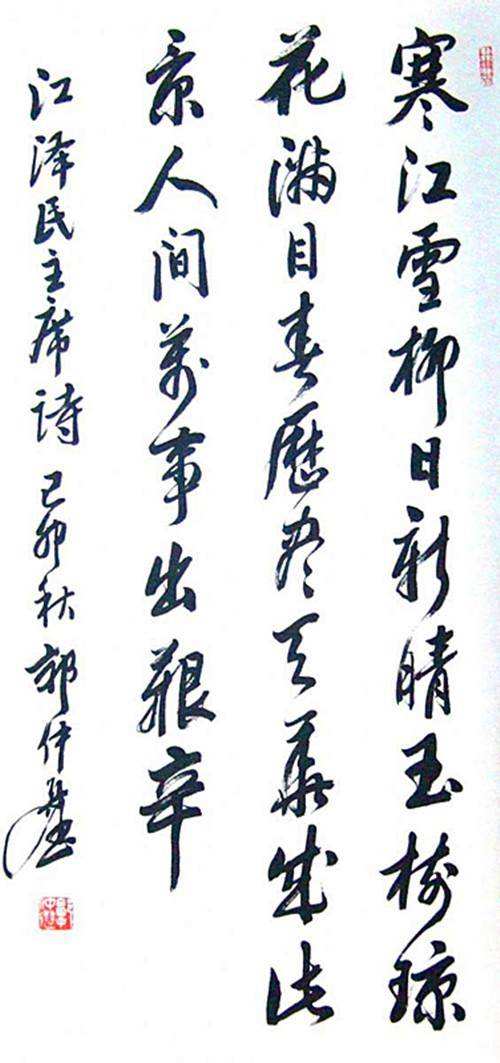 寒江雪柳日新晴玉树琼
花满目春歷尽天華成此
景人间萬事出艱辛
江泽民主席诗 己卯秋 郭仲基